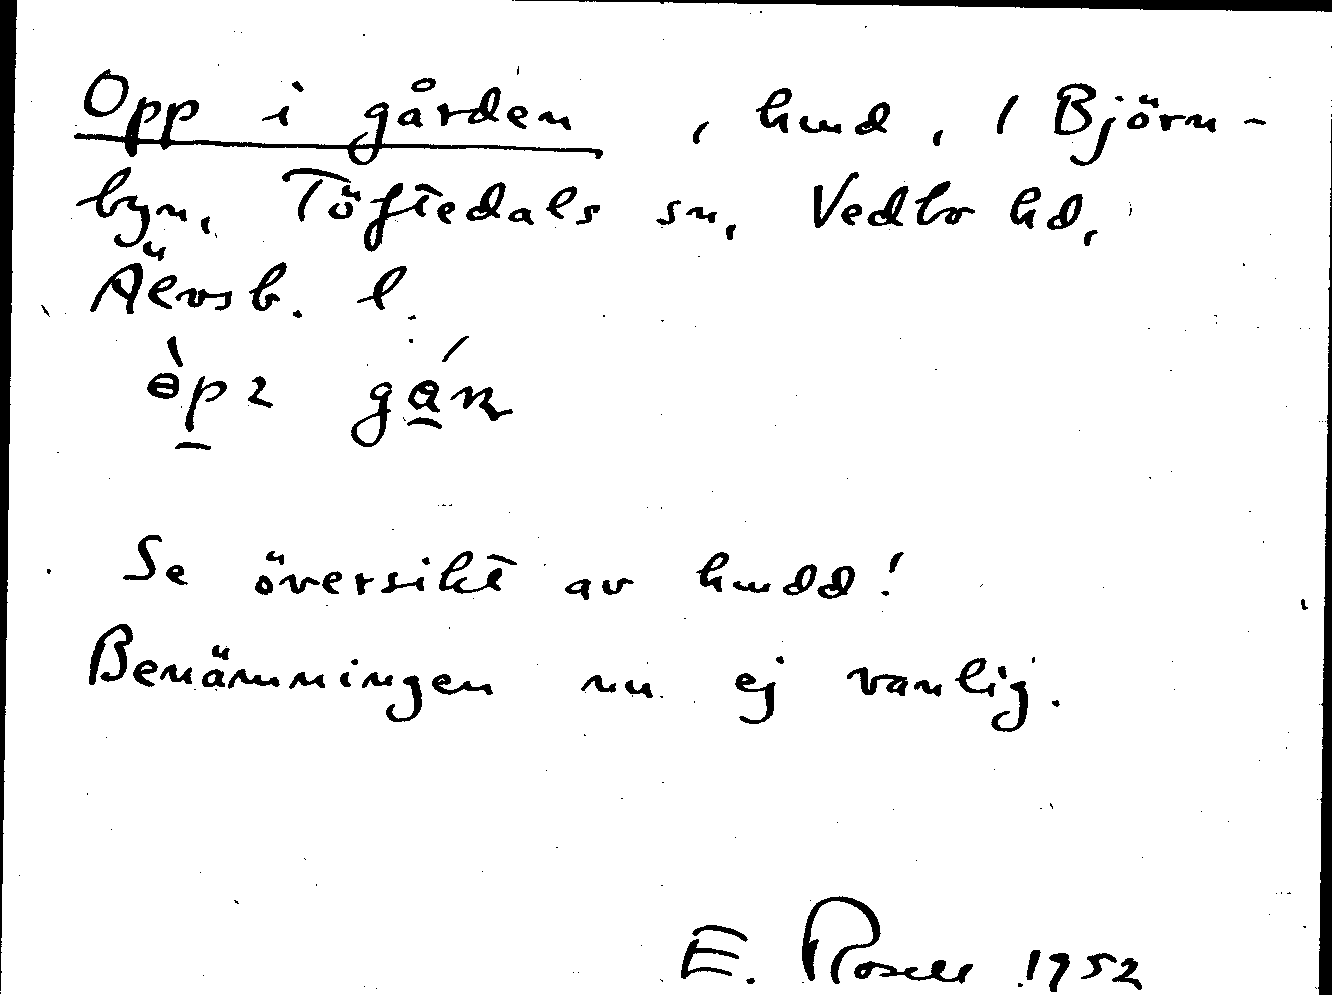 Opp i gården, hmd, 1 Björn-
byn, Töftedals sn, Vedbo hd,
Älvsb. l.
gán
Se översikt av hmdd!
Benämningen nu ej vanlig.
E. Rosell 1952